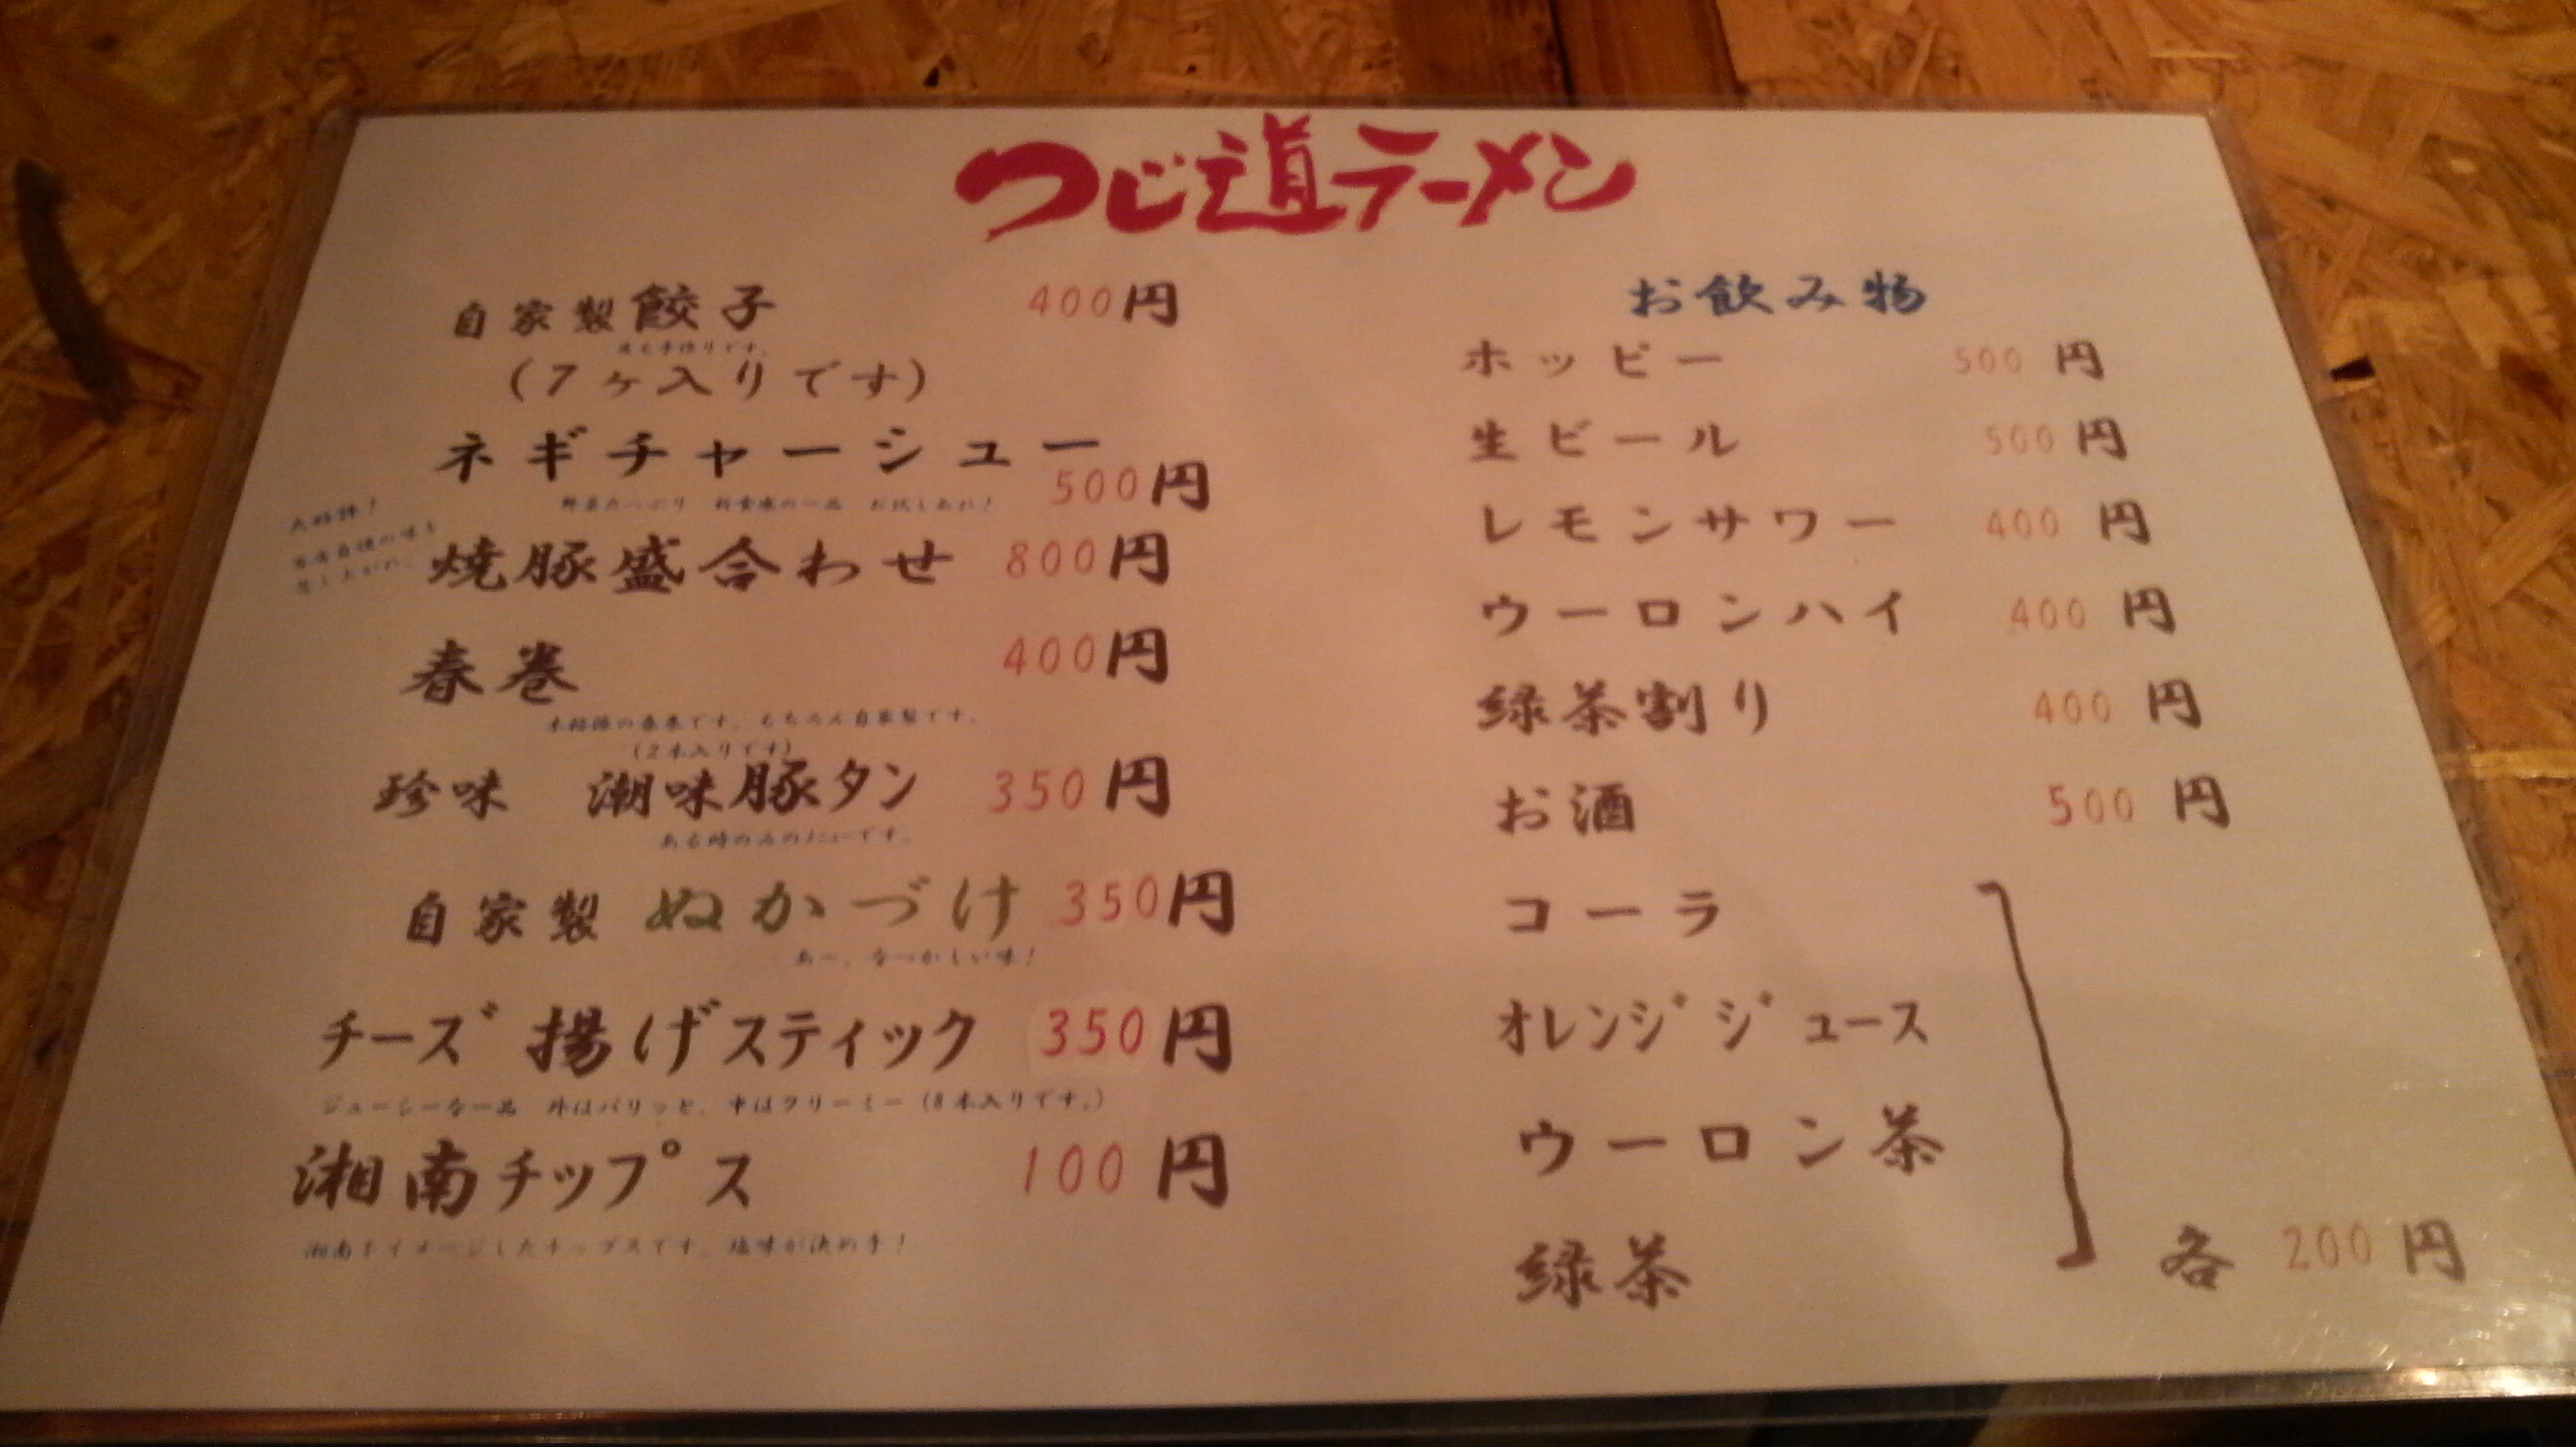 つじ道ラーメン
自家製餃子 400円
皮も手作りです。
(7ヶ入りです)
ネギチャーシュー
500円
野菜たっぷり 新食感の一品 お試しあれ!
大好評!
当店自慢の味を
召し上がれ。
焼豚盛合わせ 800円
春巻 400円
本格派の春巻です。もちろん自家製です。
(2本入りです)
珍味 潮味豚タン 350円
ある時のみのメニューです。
自家製 ぬかづけ 350円
あ〜、なつかしい味!
チーズ揚げスティック 350円
ジューシーな一品 外はパリッと、中はクリーミー(8本入りです。)
湘南チップス 100円
湘南をイメージしたチップスです。塩味が決め手!
お飲み物
ホッピー 500円
生ビール 500円
レモンサワー 400円
ウーロンハイ 400円
緑茶割り 400円
お酒 500円
コーラ
オレンジジュース
ウーロン茶
緑茶
各 200円